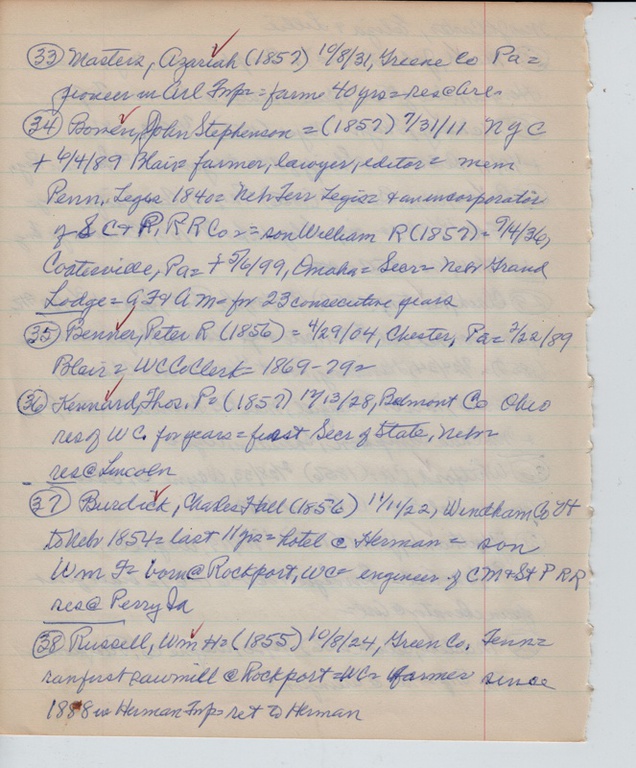 33 Masters, Azariah (1857) 10/8/31, Greene Co Pa =
pioneer in Arl Twp = farm 40 yrs = res @ Arl.
34 Bowen, John Stephenson = (1857) 7/31/11 NYC
+ 4/4/89 Blair = farmer, lawyer, editor = mem
Penn. Legis 1840 = Neb Terr Legis = & an incorporator
of S C & P. R R Co = son William R (1857) = 9/4/36,
Coatesville, Pa = + 5/6/99, Omaha = Secr = Nebr Grand
Lodge = A F & A M = for 23 consecutive years
35 Benner, Peter R (1856) = 4/29/04, Chester, Pa = 2/22/89
Blair = WC Co Clerk = 1869-79 =
36 Kennard, Thos. P = (1857) 12/13/28, Belmont Co Ohio
res of WC for years = first Secr of State, Nebr =
res @ Lincoln
37 Burdick, Charles Hall (1856) 11/11/22, Windham Co Vt
to Nebr 1854 = last 11 yrs = hotel @ Herman = son
Wm F = born @ Rockport, WC = engineer of C M & St P RR
res @ Perry Ia
38 Russell, Wm H = (1855) 10/8/24, Green Co. Tenn =
ran first sawmill @ Rockport = WC = farmer since
1888 in Herman Twp = ret to Herman